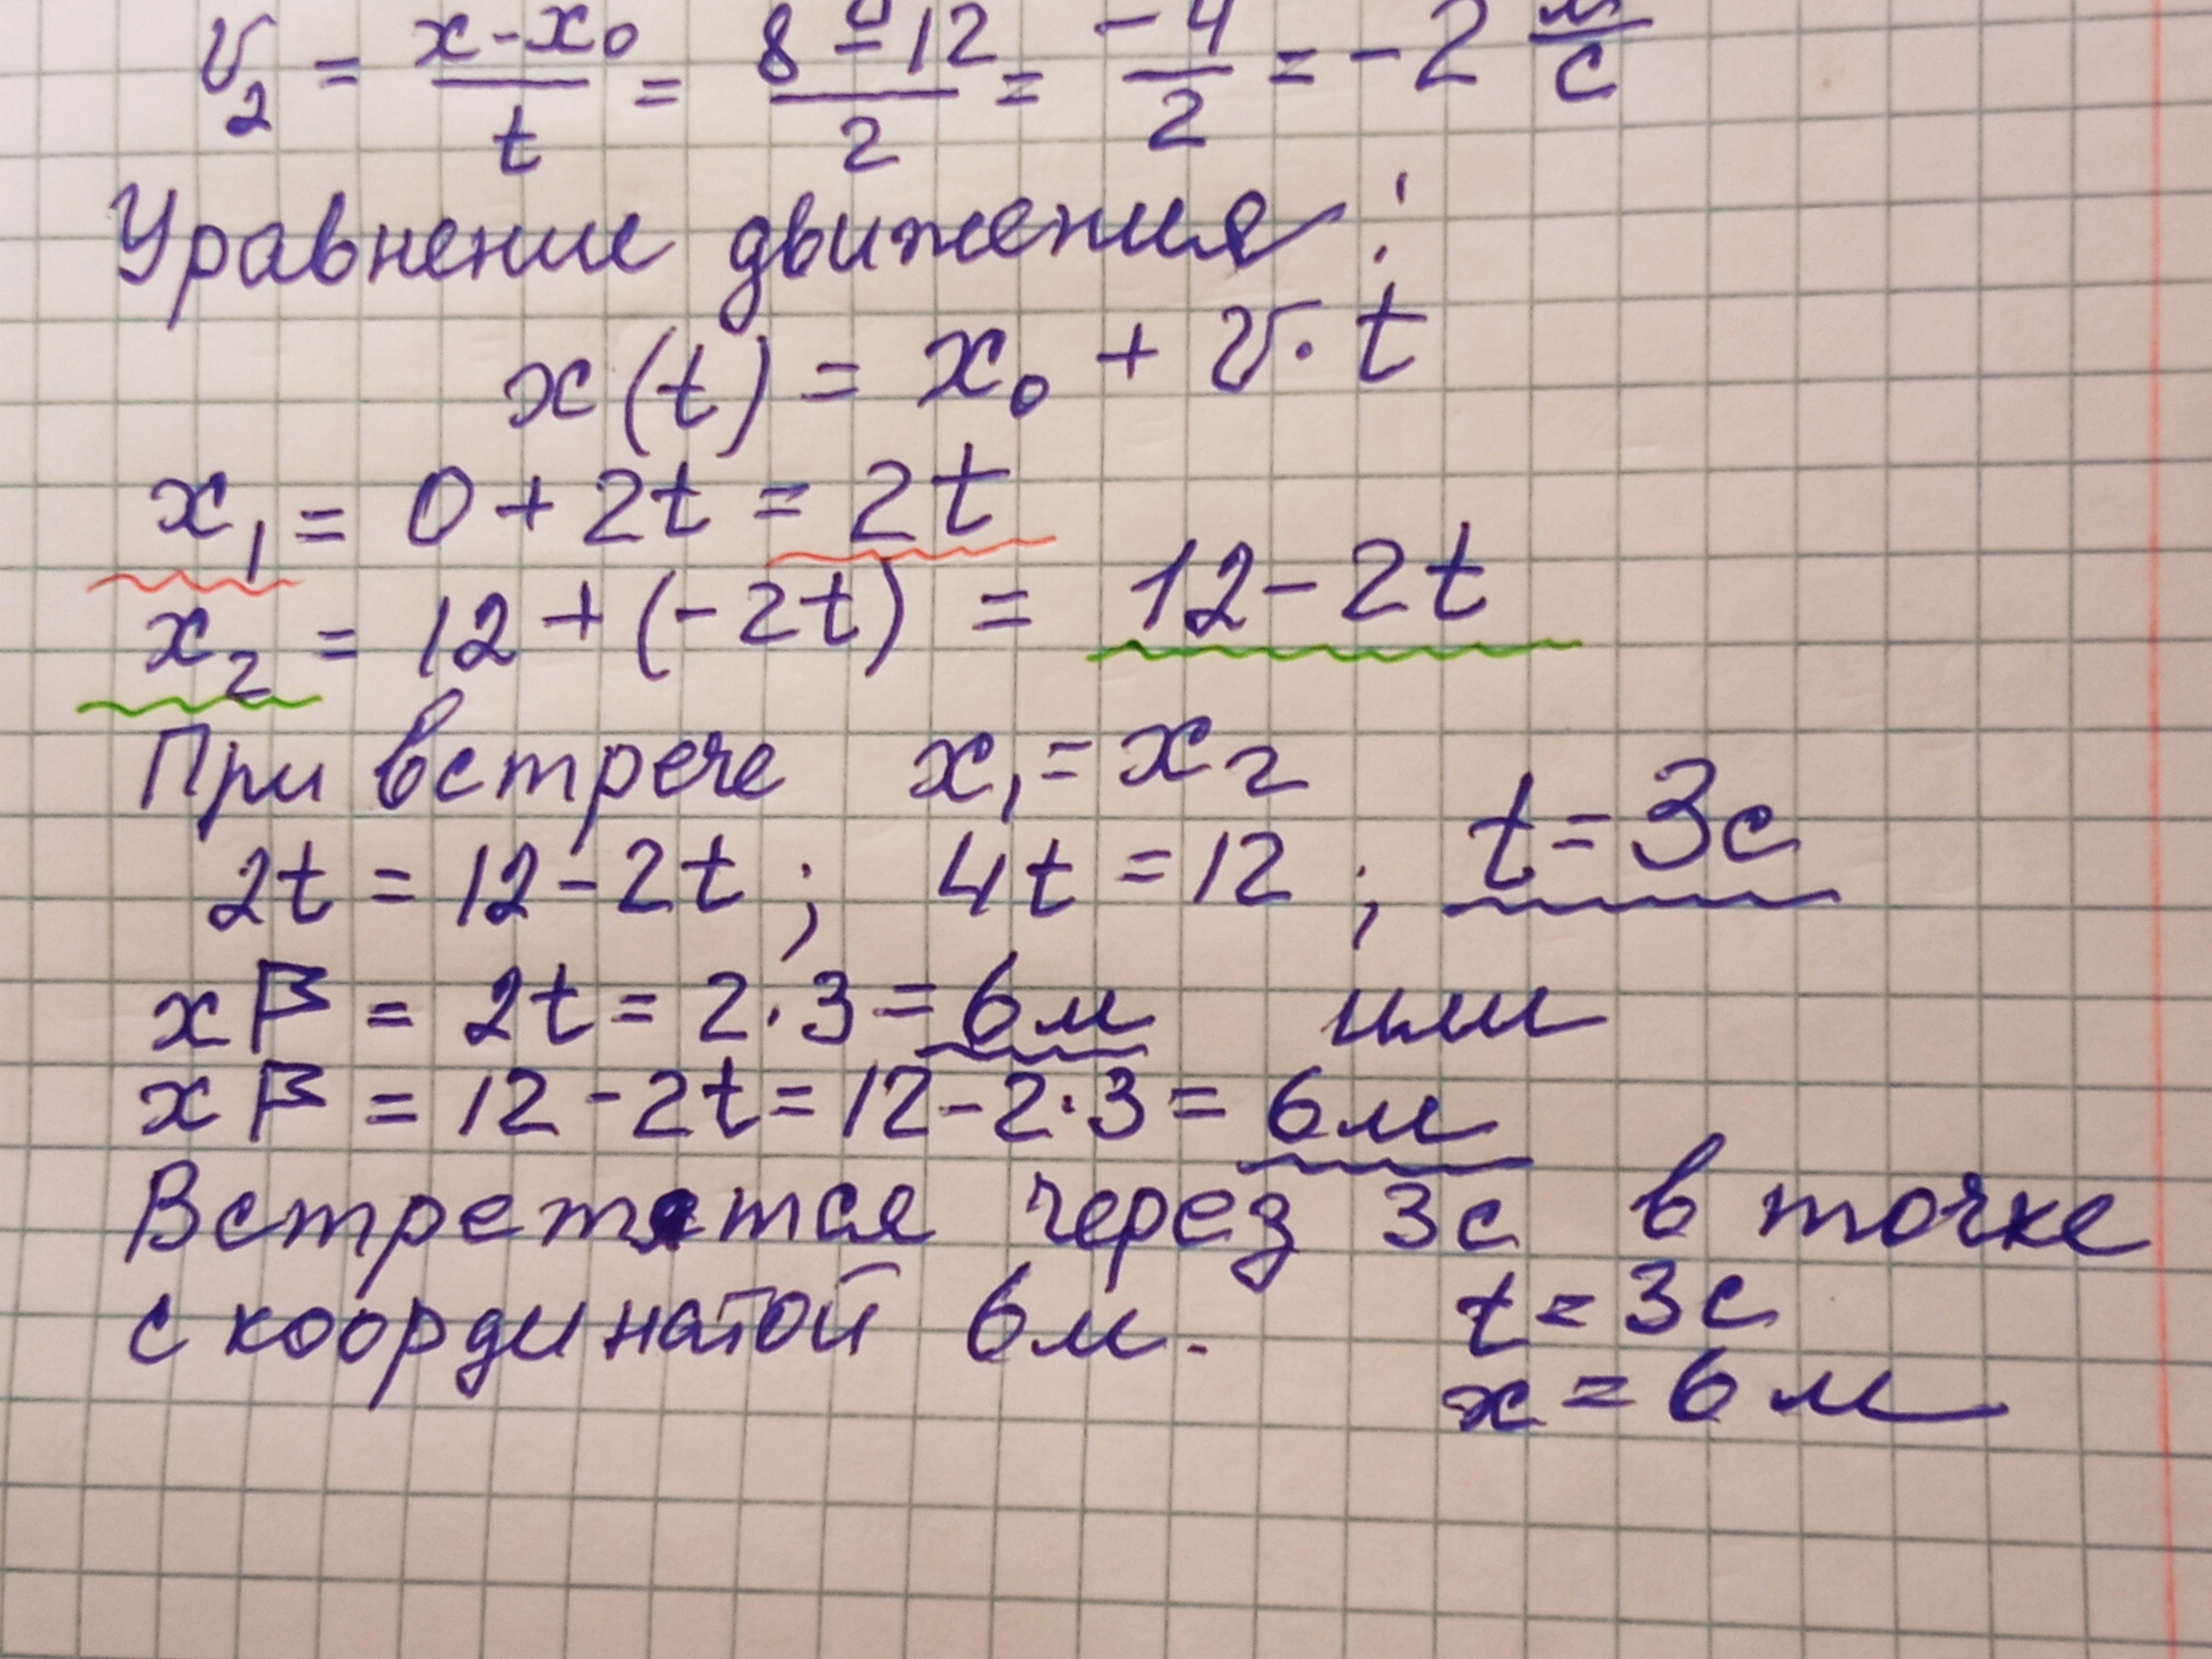 v₂ = (x - x₀)/t = (8 - 12)/2 = -4/2 = -2 м/с
Уравнение движения:
x(t) = x₀ + v · t
x₁ = 0 + 2t = 2t
x₂ = 12 + (-2t) = 12 - 2t
При встрече x₁ = x₂
2t = 12 - 2t ; 4t = 12 ; t = 3с
x = 2t = 2·3 = 6м или
x = 12 - 2t = 12 - 2·3 = 6м
Встретятся через 3с в точке
с координатой 6м. t = 3с
x = 6м